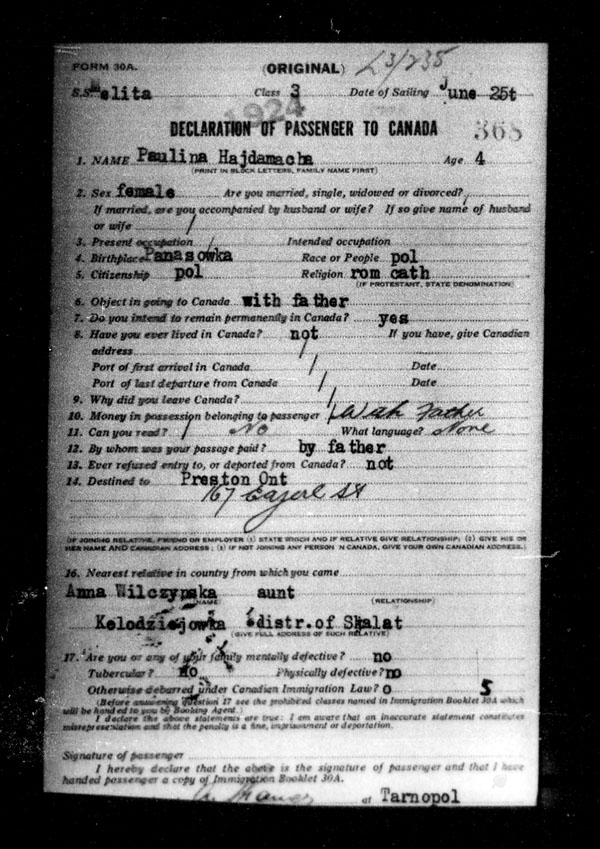 FORM 30A. (ORIGINAL) L3/235
S.S. Melita Class 3 Date of Sailing June 25t
1924
DECLARATION OF PASSENGER TO CANADA 368
1. NAME Paulina Hajdamacha Age 4
(PRINT IN BLOCK LETTERS, FAMILY NAME FIRST)
2. Sex female Are you married, single, widowed or divorced? /
If married, are you accompanied by husband or wife? If so give name of husband
or wife /
3. Present occupation / Intended occupation
4. Birthplace Panasowka Race or People pol
5. Citizenship pol Religion rom cath
(IF PROTESTANT, STATE DENOMINATION)
6. Object in going to Canada with father
7. Do you intend to remain permanently in Canada? yes
8. Have you ever lived in Canada? not If you have, give Canadian
address /
Port of first arrival in Canada / Date
Port of last departure from Canada / Date
9. Why did you leave Canada? /
10. Money in possession belonging to passenger / With Father
11. Can you read? / No What language? None
12. By whom was your passage paid? by father
13. Ever refused entry to, or deported from Canada? not
14. Destined to Preston Ont
167 St
(IF JOINING RELATIVE, FRIEND OR EMPLOYER (1) STATE WHICH AND IF RELATIVE GIVE RELATIONSHIP; (2) GIVE HIS OR
HER NAME AND CANADIAN ADDRESS; (3) IF NOT JOINING ANY PERSON IN CANADA, GIVE YOUR OWN CANADIAN ADDRESS.)
16. Nearest relative in country from which you came
Anna Wilczynska aunt
(NAME) (RELATIONSHIP)
Kolodziejowka distr.of Skalat
(GIVE FULL ADDRESS OF SUCH RELATIVE)
17. Are you or any of your family mentally defective? no
Tubercular? no Physically defective? no
Otherwise debarred under Canadian Immigration Law? o 5
(Before answering question 17 see the prohibited classes named in Immigration Booklet 30A which
will be handed to you by Booking Agent.)
I declare the above statements are true: I am aware that an inaccurate statement constitutes
misrepresentation and that the penalty is a fine, imprisonment or deportation.
Signature of passenger
I hereby declare that the above is the signature of passenger and that I have
handed passenger a copy of Immigration Booklet 30A.
at Tarnopol